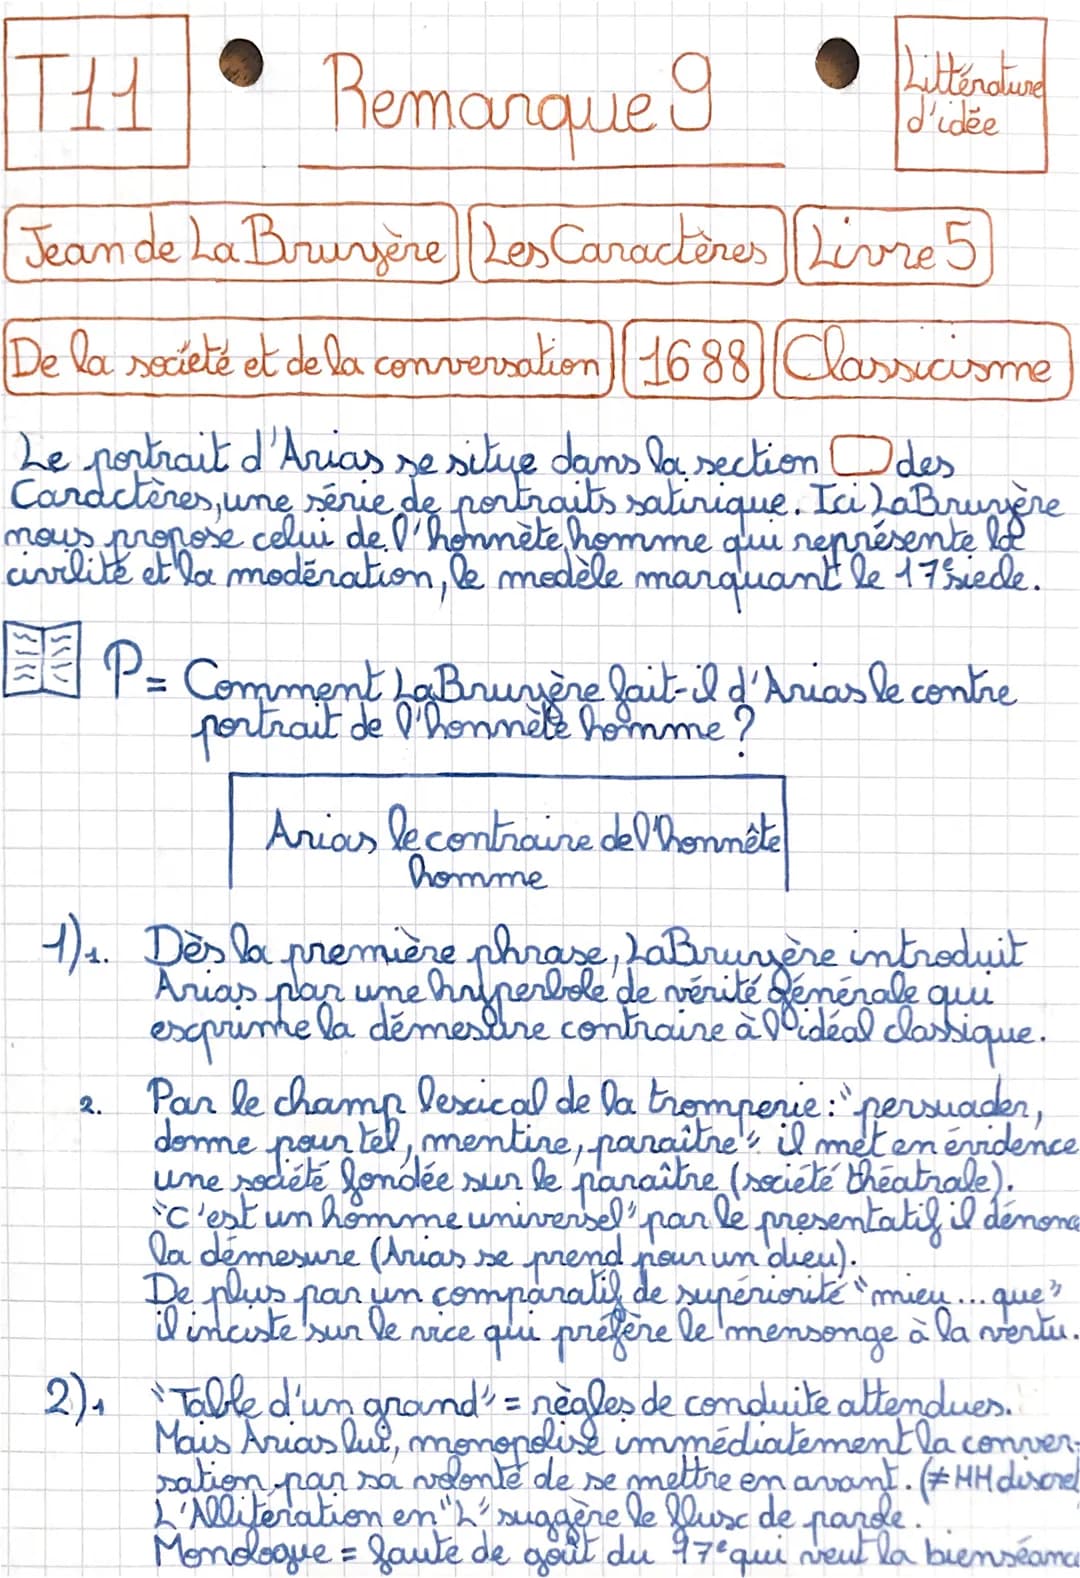 T11
Remarque 9
Littérature
d'idée
Jean de La Bruyère
Les Caractères
Livre 5
De la societé et de la conversation
1688
Classicisme
Le portrait d'Arias se situe dans la section des
Caractères, une série de portraits satirique. Ici La Bruyère
nous propose celui de l'honnète homme qui représente la
civilité et la modération, le modèle marquant le 17e siecle.
P = Comment La Bruyère fait-il d'Arias le contre
portrait de l'honnète homme ?
Arias le contraire de l'honnête
homme
1) 1. Dès la première phrase, La Bruyère introduit
Arias par une hyperbole de vérité générale qui
exprime la démesure contraire à l'idéal classique.
2. Par le champ lexical de la tromperie : "persuader,
donne pour tel, mentire, paraître" il met en évidence
une société fondée sur le paraître (société théatrale).
"C'est un homme universel" par le presentatif il dénonc
la démesure (Arias se prend pour un dieu).
De plus par un comparatif de supériorité "mieu... que"
il inciste sur le vice qui préfère le mensonge à la vertu.
2) 1 "Table d'un grand" = règles de conduite attendues.
Mais Arias lui, monopolise immédiatement la conver-
sation par sa volonté de se mettre en avant. (≠ HH discret
L'Allitération en "L" suggère le flux de parole.
Monologue = faute de goût du 17e qui veut la bienséanc